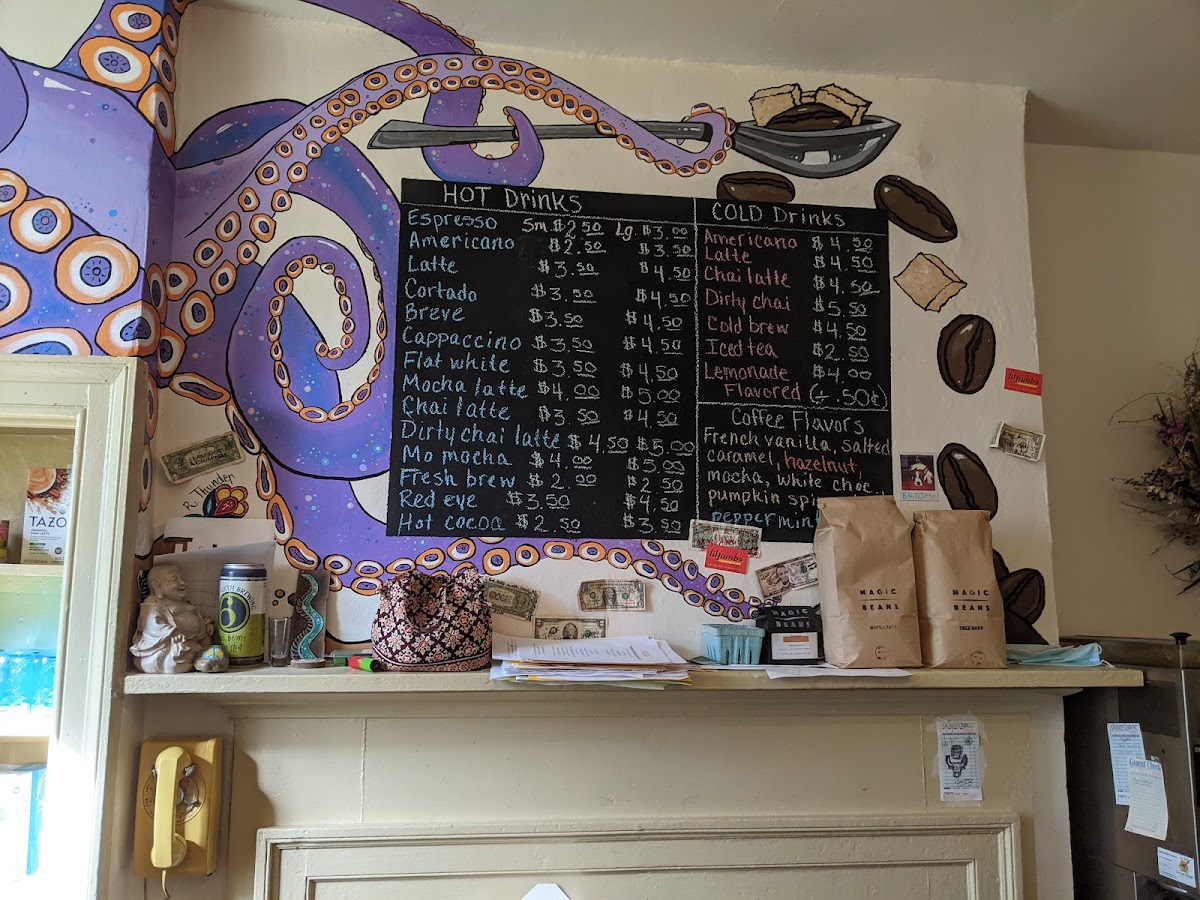 HOT Drinks
Espresso Sm. $2.50 Lg. $3.00
Americano $2.50 $3.50
Latte $3.50 $4.50
Cortado $3.50 $4.50
Breve $3.50 $4.50
Cappuccino $3.50 $4.50
Flat white $3.50 $4.50
Mocha latte $4.00 $5.00
Chai latte $3.50 $4.50
Dirty chai latte $4.50 $5.00
Mo mocha $4.00 $5.00
Fresh brew $2.00 $2.50
Red eye $3.50 $4.50
Hot cocoa $2.50 $3.50
COLD Drinks
Americano $4.50
Latte $4.50
Chai latte $4.50
Dirty chai $5.50
Cold brew $4.50
Iced tea $2.50
Lemonade $4.00
Flavored (+ .50¢)
Coffee Flavors
French vanilla, salted
caramel, hazelnut,
mocha, white choc
pumpkin spi
peppermint
liljumbs
liljumbs
R. Thunder
TAZO
BALTO
MAGIC
BEANS
MAGIC
BEANS
COLD BREW
MAGIC
BEANS
6
Guest Check